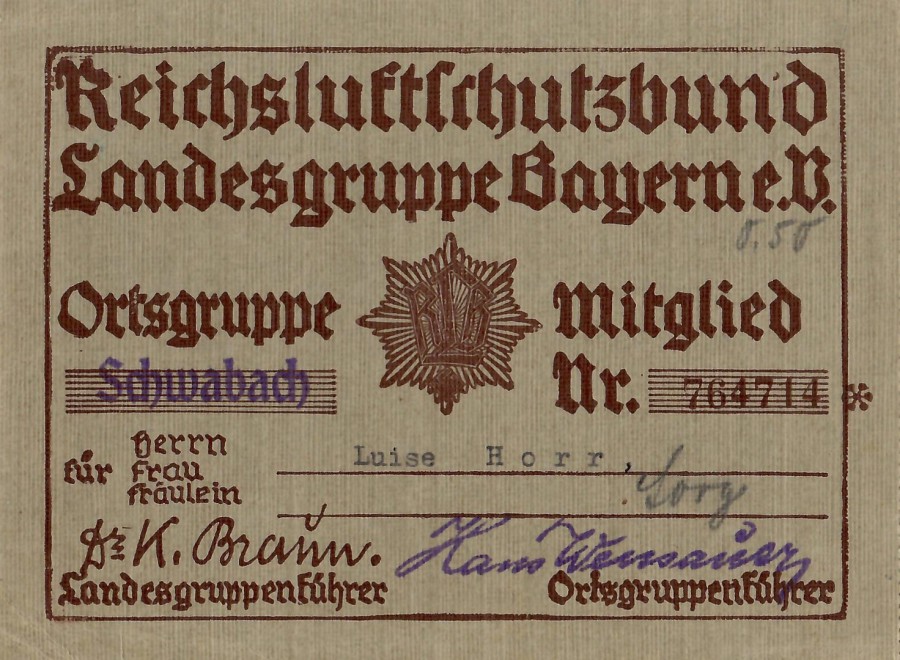 Reichsluftschutzbund
Landesgruppe Bayern e.V.
Ortsgruppe
Schwabach
RLB
Mitglied
Nr. 764714 *
für Herrn
Frau
Fräulein
Luise Horr,
Dr. K. Braun.
Landesgruppenführer
Ortsgruppenführer